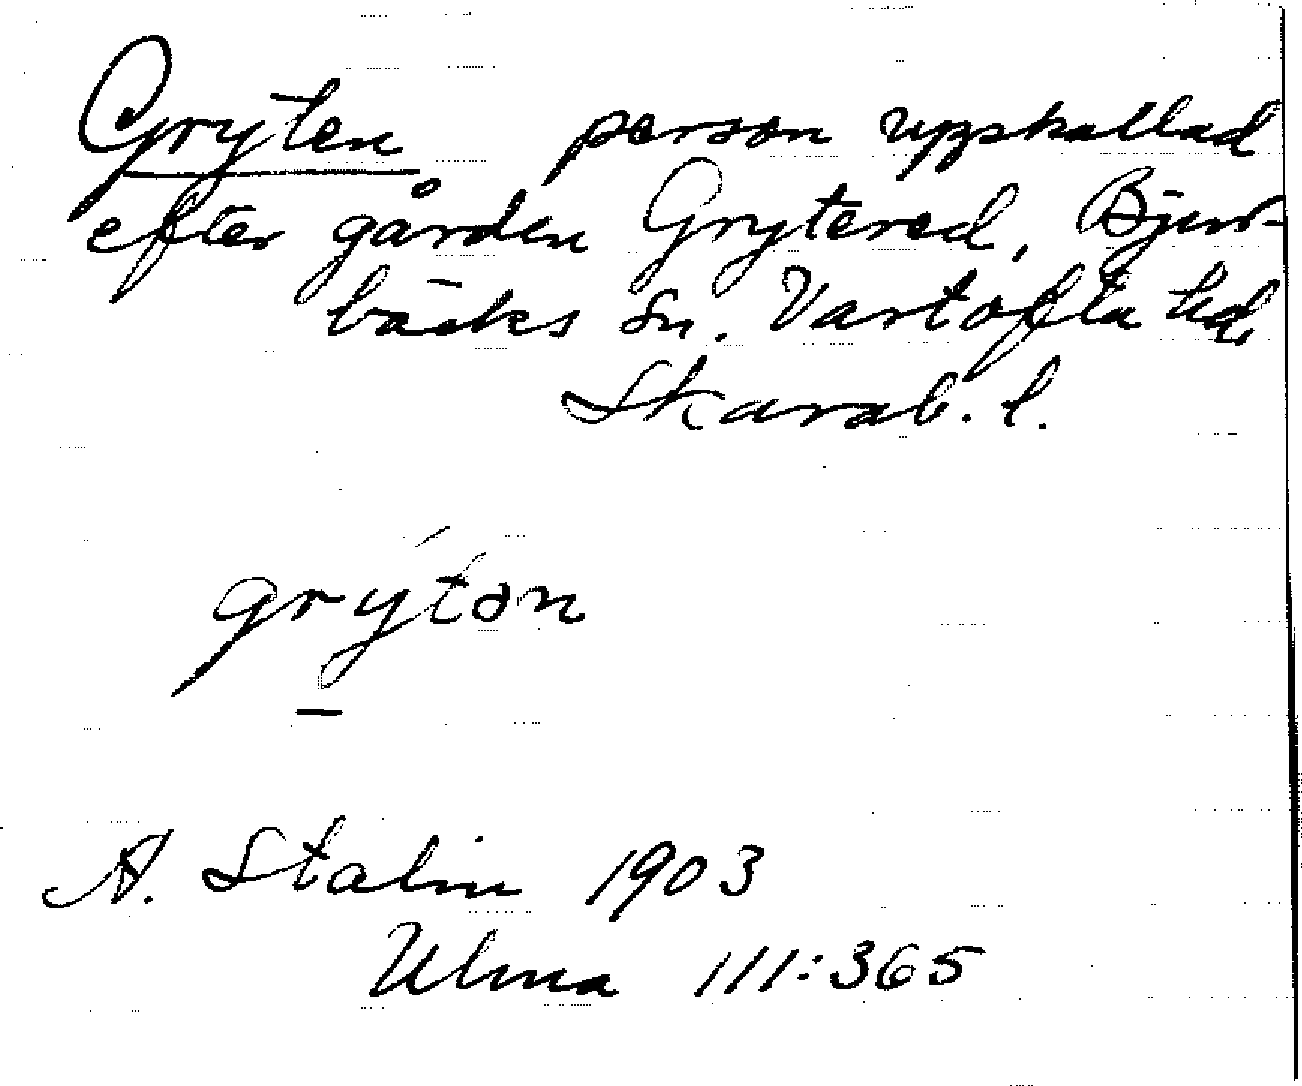 Gryten person uppkallad
efter gården Grytered, Bjur-
bäcks sn. Vartofta hd
Skarab. l.
grýtən
A. Stalin 1903
Ulma 111:365